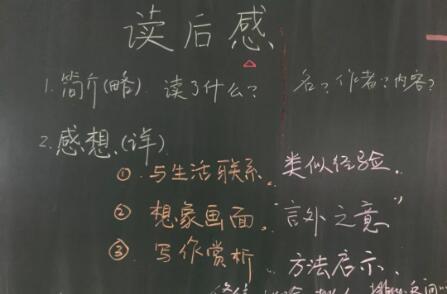 读后感
1. 简介(略). 读了什么? 名? 作者? 内容?
2. 感想、(详)
① 与生活联系。类似经验.
② 想象画面。"言外之意"
③ 写作赏析 方法启示.